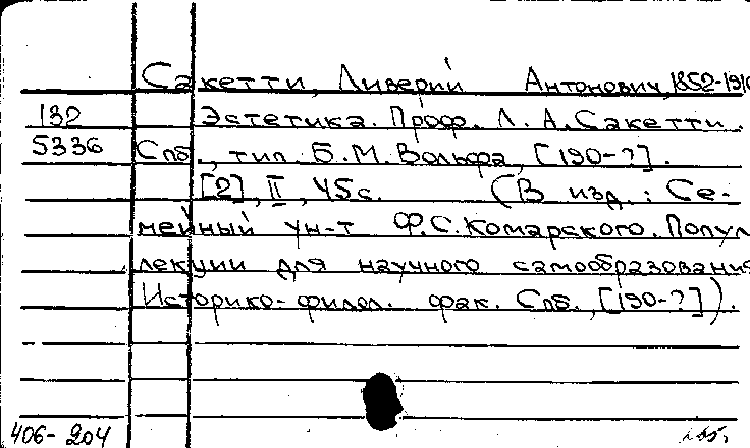 Сакетти, Ливерий Антонович, 1852-1916
132 Эстетика. Проф. Л. А. Сакетти.
5336 Спб., тип. Б. М. Вольфа, [190-?].
[2], II, 45с. (В изд.: Се-
мейный ун-т Ф. С. Комарского. Попул
лекции для научного самообразования
Историко-филол. фак. Спб., [190-?]).
406-204